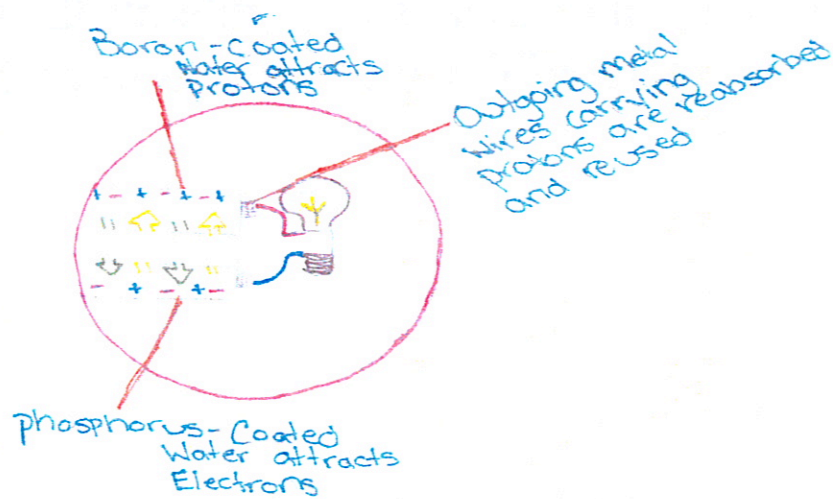 Boron-Coated
Water attracts
Protons
Outgoing metal
Wires carrying
protons are reabsorbed
and reused
phosphorus-Coated
Water attracts
Electrons